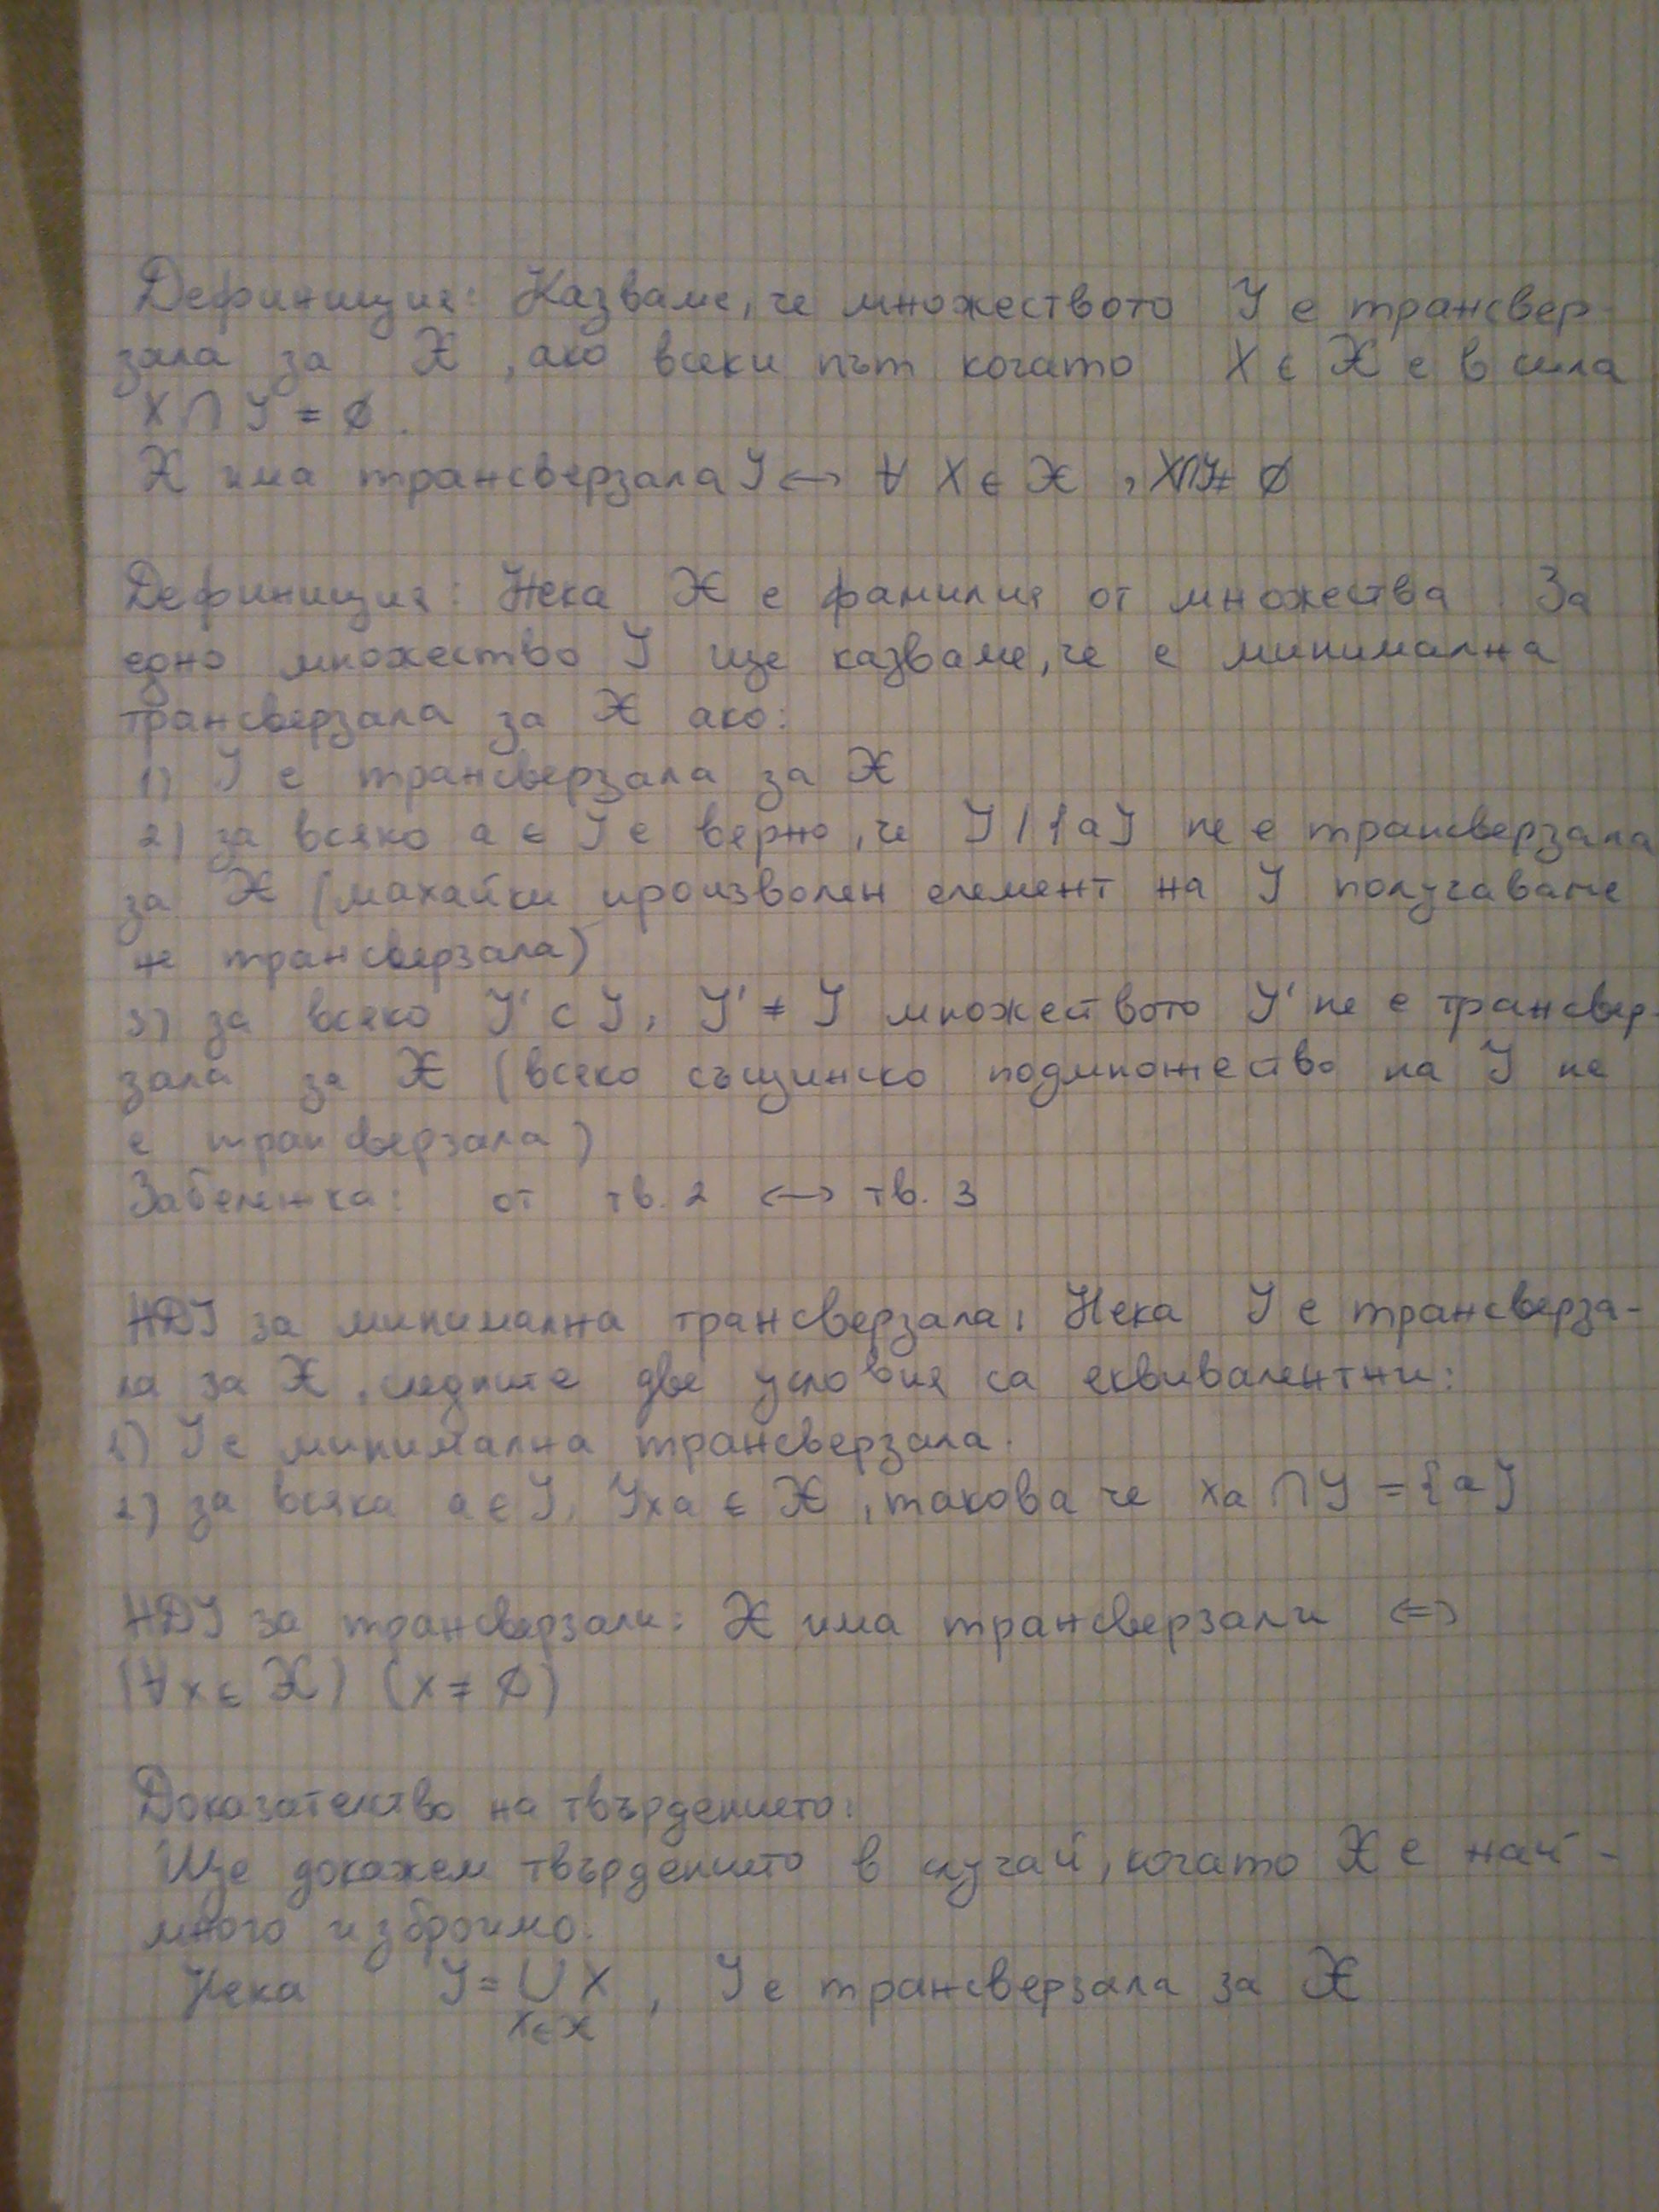 Дефиниция: Казваме, че множеството Y е трансвер-
зала за X, ако всеки път когато X ∈ X е в сила
X ∩ Y = ∅.
X има трансверзала Y ↔ ∀ X ∈ X , X∩Y ≠ ∅
Дефиниция: Нека X е фамилия от множества. За
едно множество Y ще казваме, че е минимална
трансверзала за X ако:
1) Y е трансверзала за X
2) за всяко a ∈ Y е верно, че Y \ {a} не е трансверзала
за X (махайки произволен елемент на Y получаваме
не трансверзала)
3) за всяко Y' ⊂ Y, Y' ≠ Y множеството Y' не е трансвер-
зала за X (всяко същинско подмножество на Y не
е трансверзала)
Забележка: от тв. 2 ↔ тв. 3
НДУ за минимална трансверзала: Нека Y е трансверза-
ла за X, следните две условия са еквивалентни:
1) Y е минимална трансверзала.
2) за всяка a ∈ Y, ∃xa ∈ X, такова че xa ∩ Y = {a}
НДУ за трансверзали: X има трансверзали ⇔
(∀x ∈ X) (x ≠ ∅)
Доказателство на твърдението:
Ще докажем твърдението в случай, когато X е най-
много изброимо.
Нека Y = ∪ X , Y е трансверзала за X
X∈X